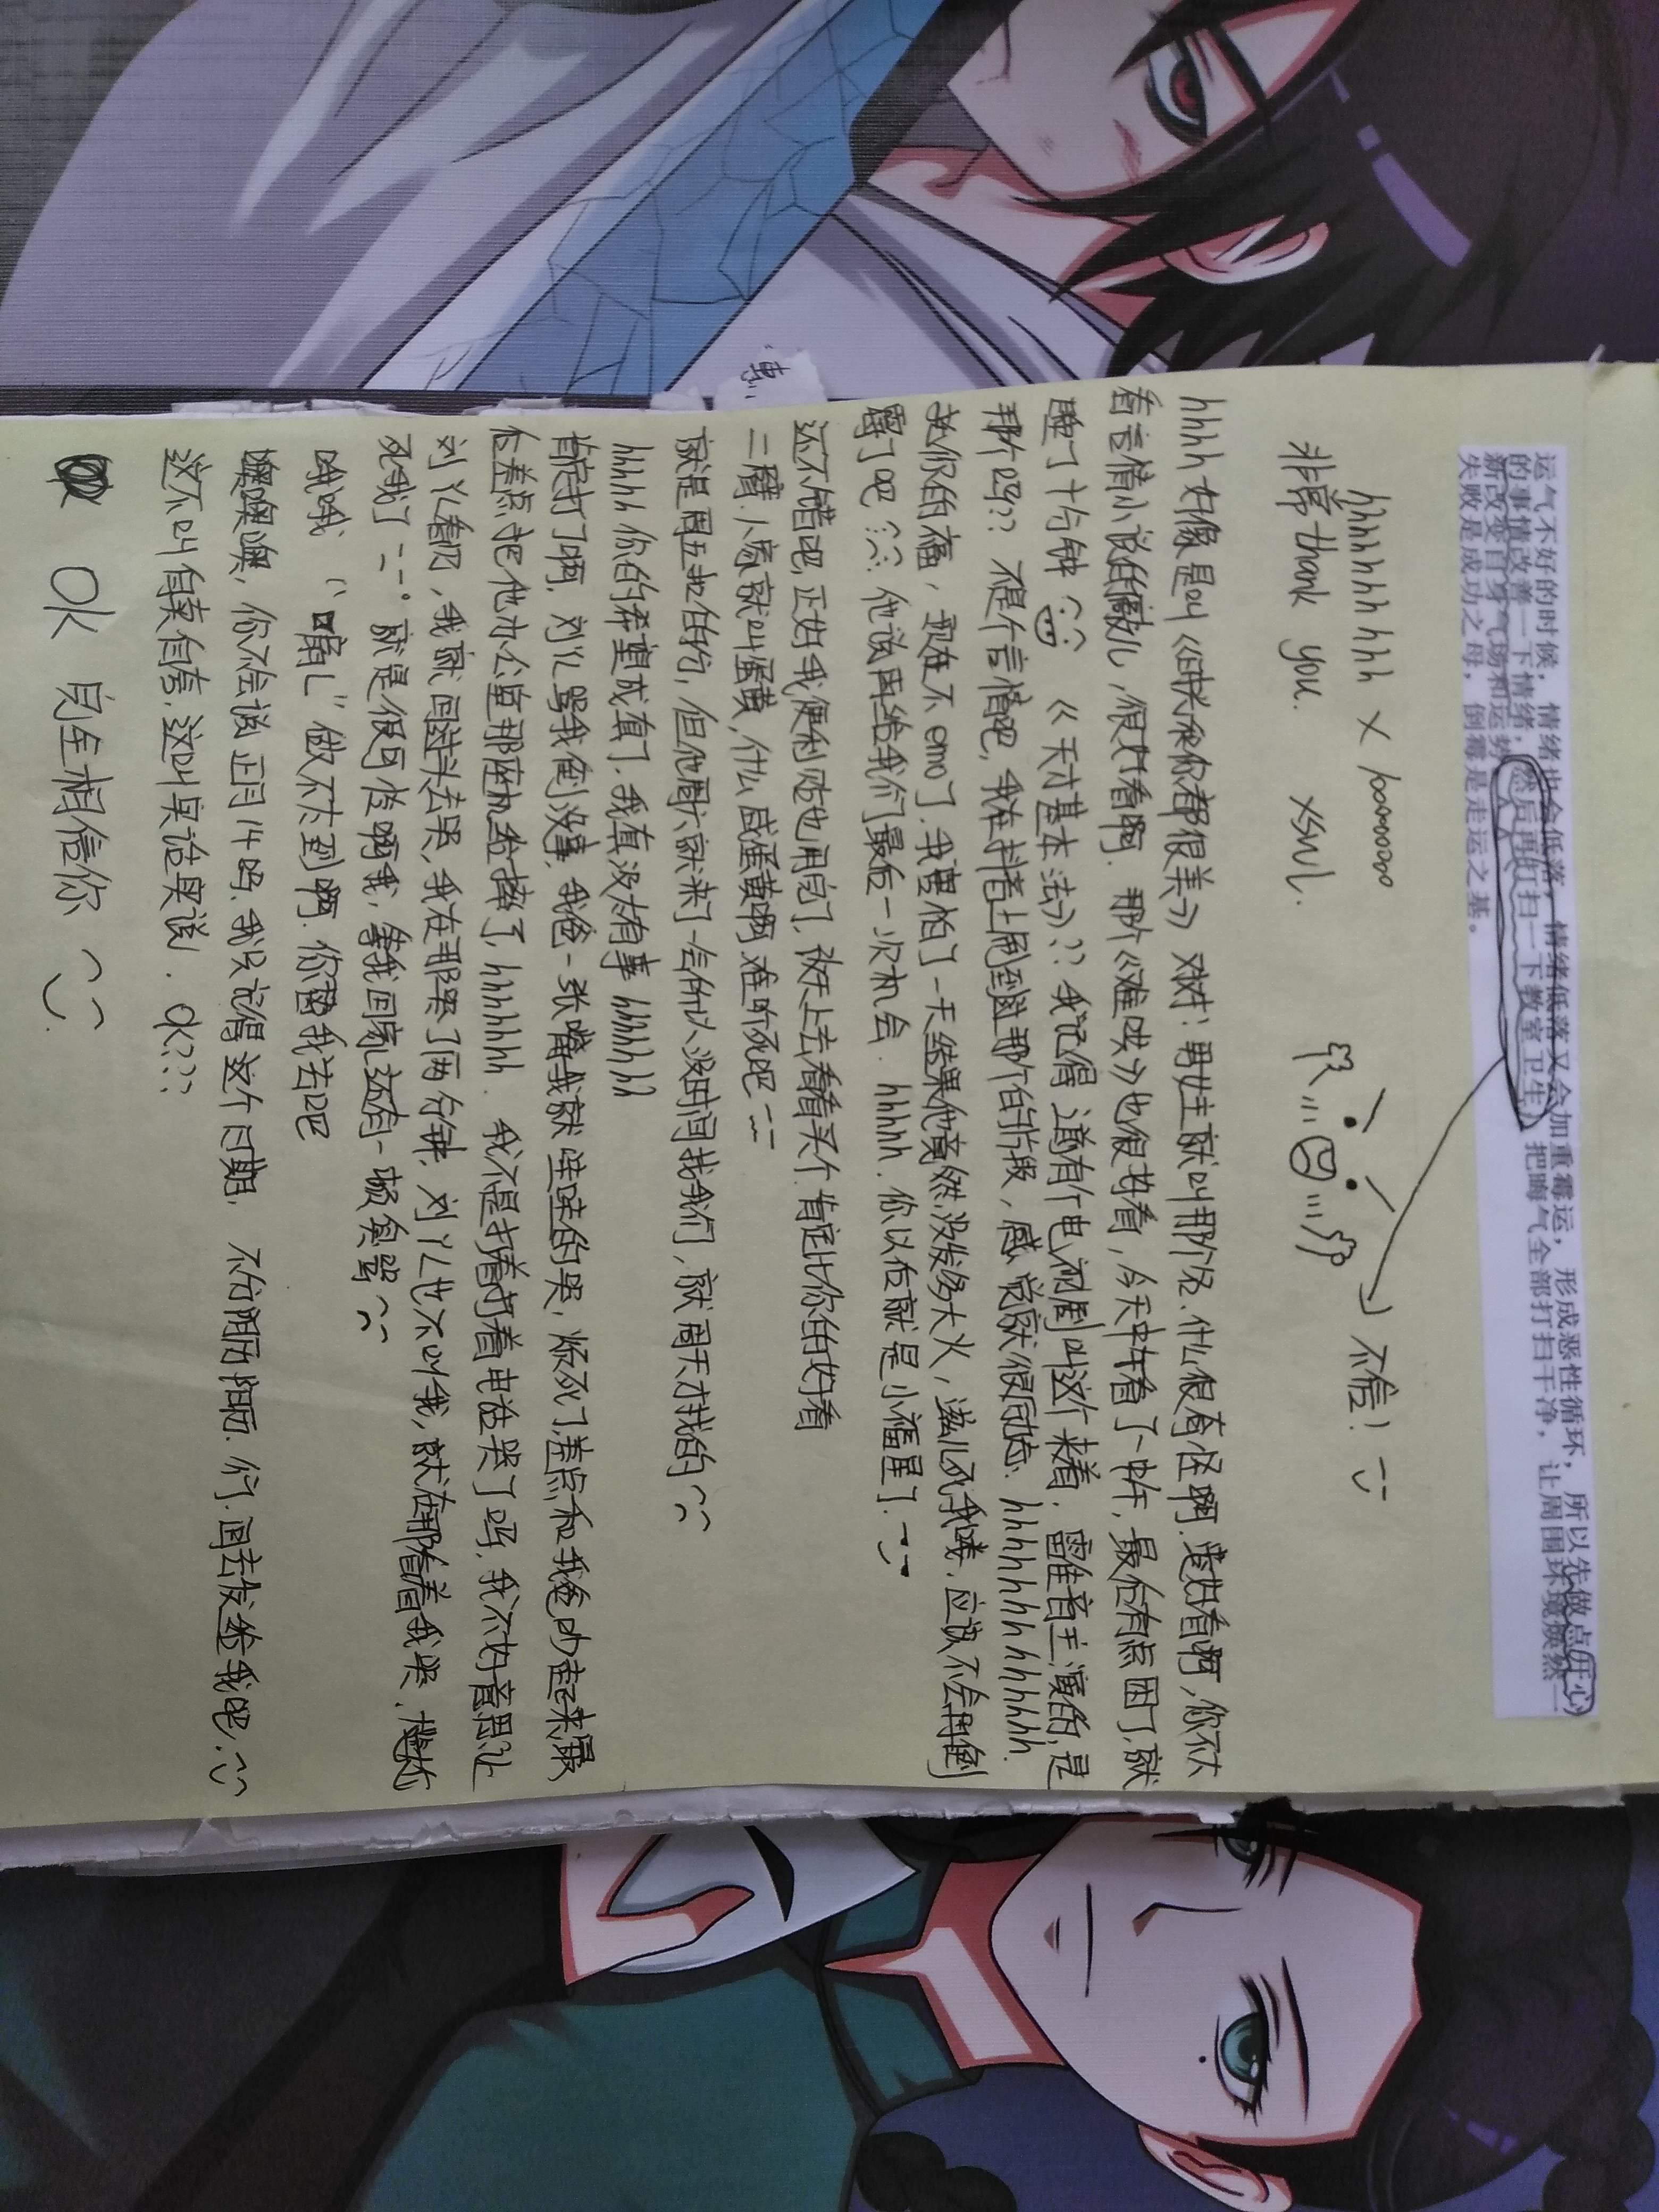 运气不好的时候，情绪也会低落，情绪低落又会加重霉运，形成恶性循环，所以先做点开心
的事情改善一下情绪，然后再打扫一下教室卫生，把晦气全部打扫干净，让周围环境焕然一
新改变自身气场和运势
失败是成功之母，倒霉是走运之基。
hhhhhhhhhh × 1000000000
不信！
非常 thank you. xswl.
hhhh 好像是叫《时光和你都很美》对对！男女主就叫那个名.什么很奇怪啊.老好看啊,你不大
看言情小说的散儿,很好看啊.那个《难哄》也很好看,今天中午看了一中午,最后有点困了,就
睡了十分钟 《天才基本法》??我记得之前有个电视剧叫这个来着.雷佳音主演的,是
那个吗??不是个言情吧,我在抖音上刷到过那个的片段,感觉就很励志.hhhhhhhhhhhhhh.
托你的福,现在不emo了.我害怕了一天结果他竟然没发多大火,滋儿死我喽.应该不会再倒
霉了吧 他说再给我们最后一次机会.hhhhh.你以后就是小福星了.
还不错吧,正好我便利贴也用完了,改天上去看看买个.肯定比你的好看
惠,,
二臂.人家就叫蛋黄,什么咸蛋黄啊.难听死吧
就是周五扣的分,但他周六就来了一会所以没时间找我们,就周天才找的
hhhhh 你的希望成真了.我真没大有事 hhhhhhh
肯定打了啊.刘丫儿骂我倒没事.我爸一张嘴我就哇哇的哭,烦死了,差点和我爸吵起来,最
后差点把他办公室那座机给摔了,hhhhhhh.我不是打着打着电话哭了吗,我不好意思让
刘丫儿看见,我就回过头去哭,我在那哭了两分钟,刘丫儿也不叫我,就在那看着我哭.尴尬
死我了 就是很可怜啊我,等我回家还有一顿臭骂
哦哦 做不大到啊.你替我去吧
噢噢噢,你不会说正月14吗.我只记得这个日期,不分阴历阳历.行.回去发给我吧.
这不叫自卖自夸.这叫实话实说.OK???
OK 完全相信你